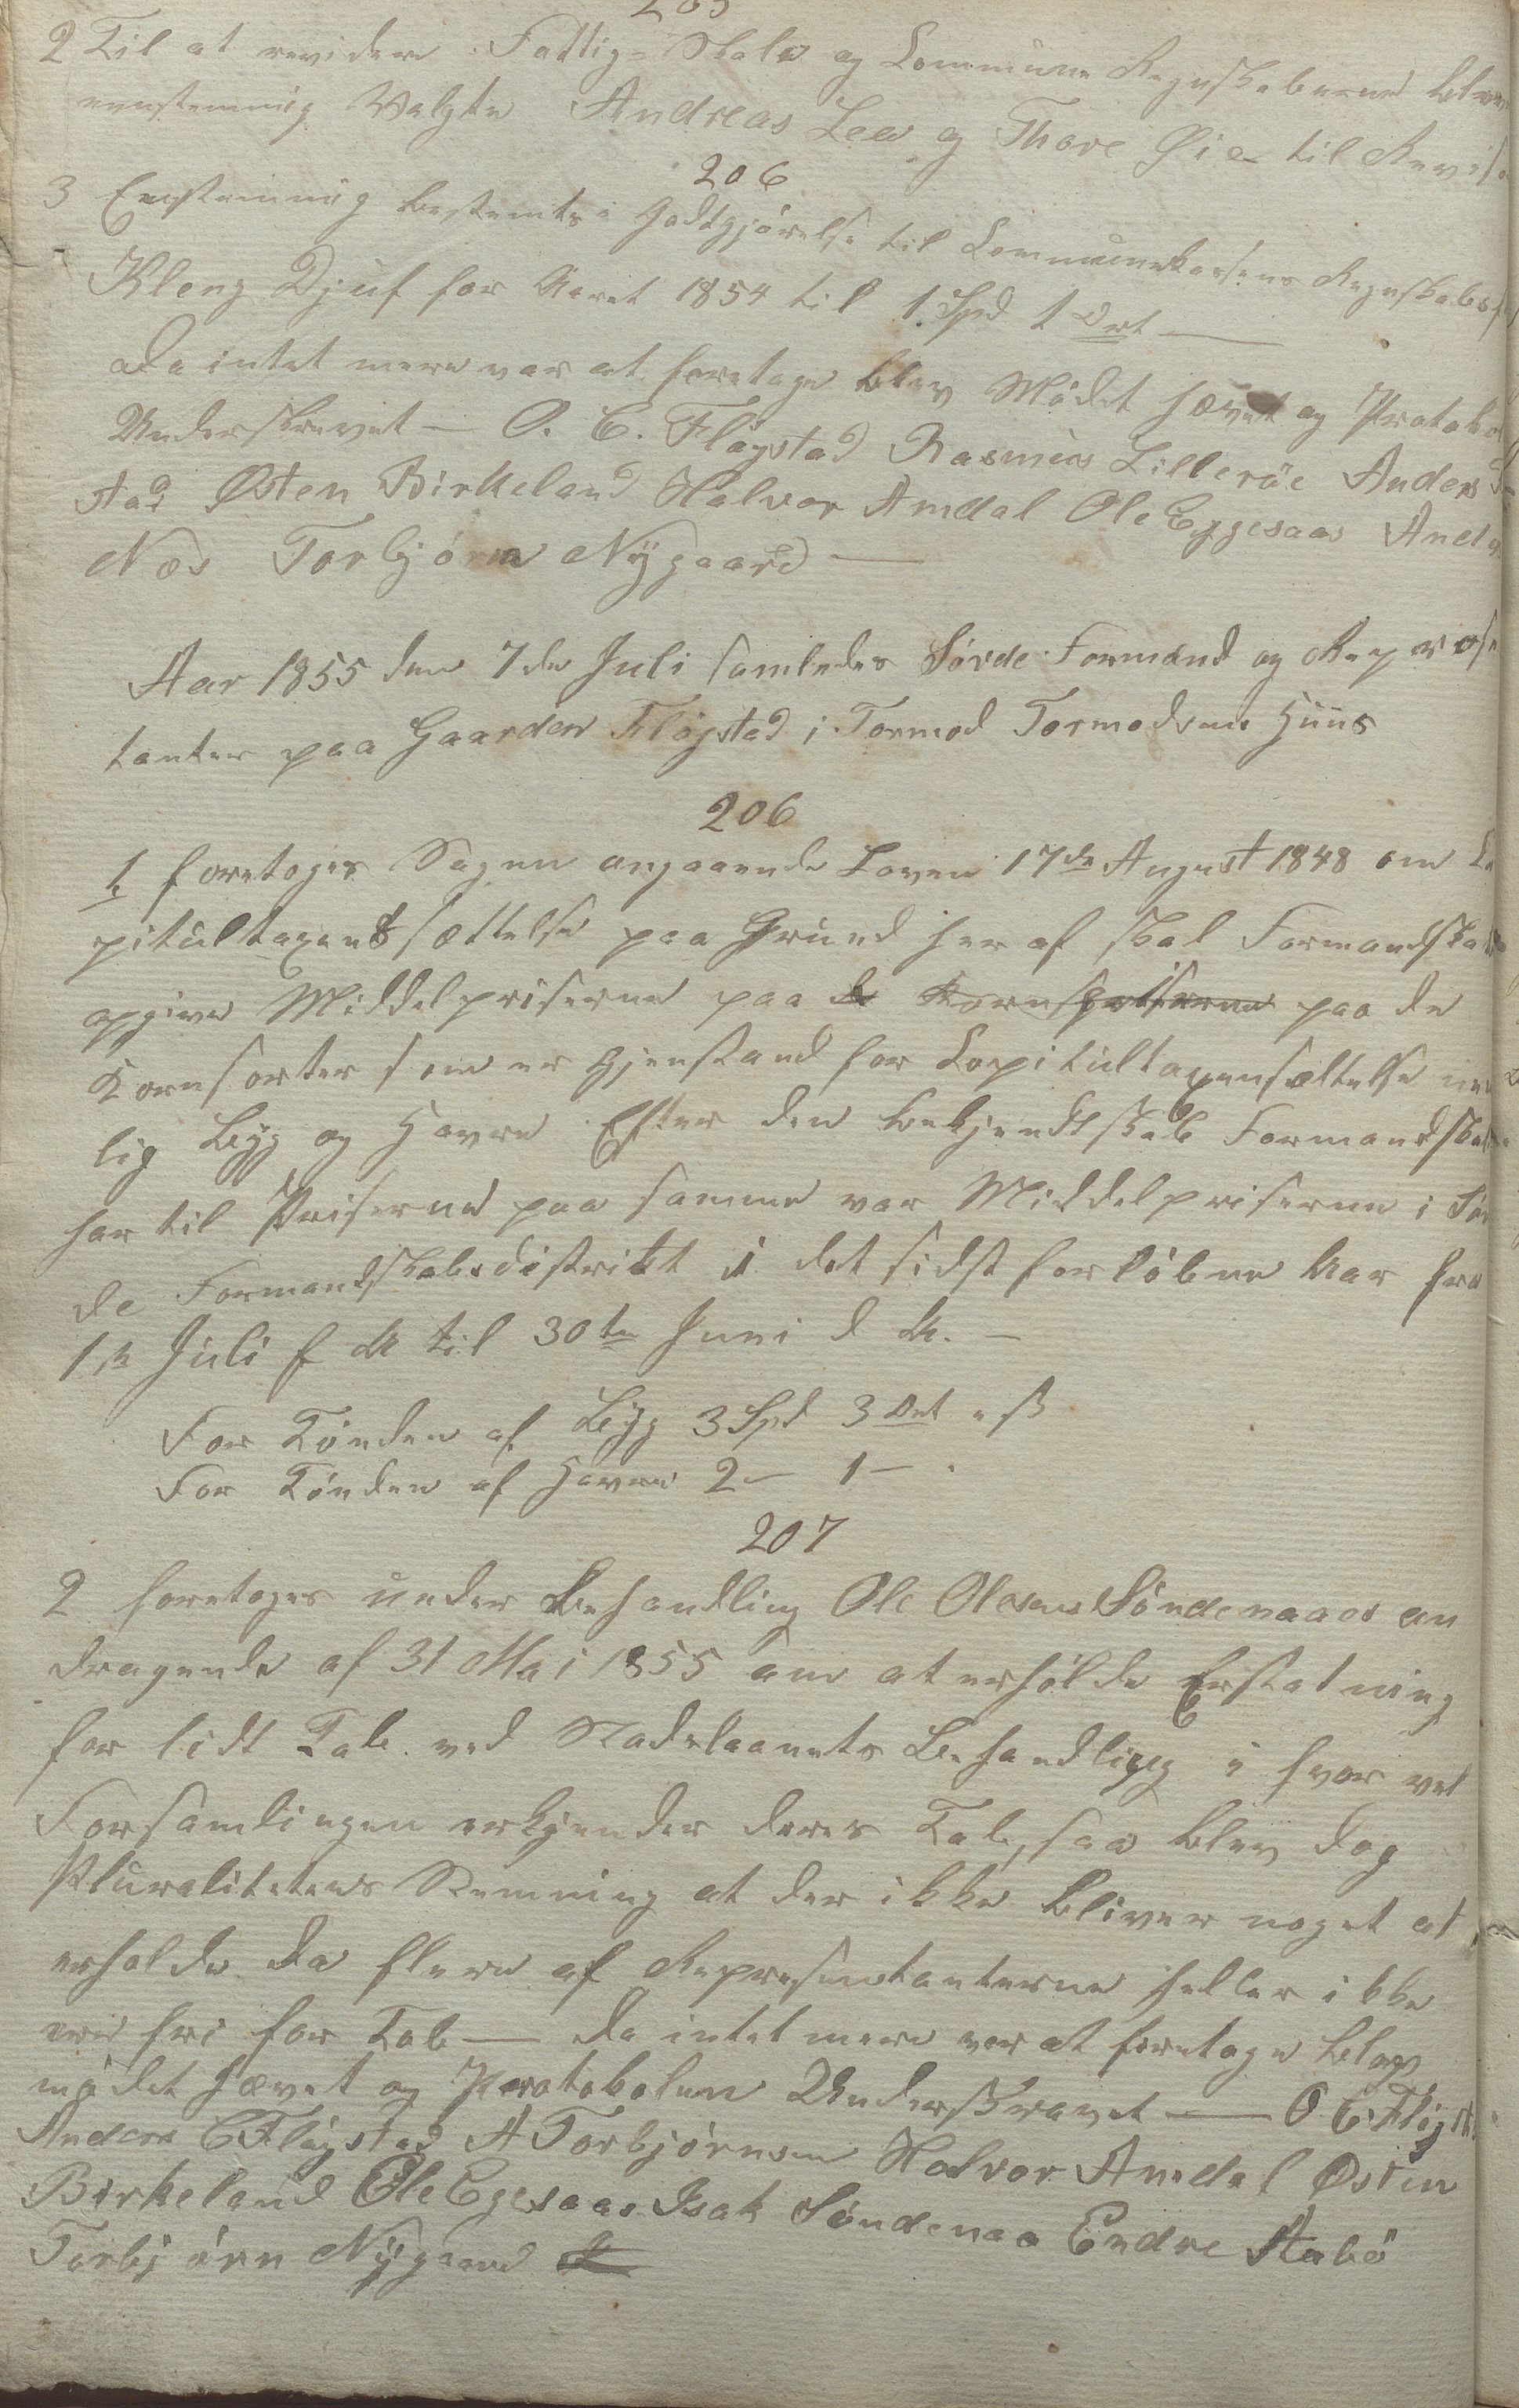 205
2 Til at revidere Fattig- Skole og Commune Regnskaberne blev
eenstemmig Valgte Andreas Lea og Thore Øie til Revis
206
3 Eenstemmig bestemtes i Godtgjörelse til Communekassens Regnskabsf
Kleng Djuf for Aaret 1854 til 1 Spd 1 Ort —
Da intet mere var at foretage blev Mödet hævet og Protokol
Underskrevet — O. E. Flögstad Rasmus Lilleröe Anders
stad Østen Birkeland Halvor Amdal Ole Eggesaas And
Næs Torbjörn Nÿgaard —
Aar 1855 den 7de Juli samledes Sövde Formænd og Repræse
tanter paa Gaarden Flögstad i Tormod Tormodsens Huus
206
1, foretoges Sagen angaaende Loven 17de August 1848 om Ca
pitultaxents sættelse paa Grund her af skal Formandskab
opgive Middelpriserne paa de Kornsorterne paa de
Kornsorter som er Gjenstand for Capitultaxensættelse nem
lig Byg og Havre Efter den bekjendtskab Formandskab
har til Priserne paa samme var Middelpriserne i Söv
de Formandskabsdistrikt i det sidst forlöbne Aar fra
1ste Juli f A til 30te Juni d A. —
For Tönden af Byg 3 Spd 3 Ort " ß
For Tönden af Havre 2 — 1 — "
207
2 foretoges under Behandling Ole Olesens Söndenaaes an
dragende af 31 Mai 1855 om at erholde Erstatning
for lidt Tab ved Stadslaanets Behandling i hvor vel
Forsamlingen erkjender deres Tab, saa blev dog
Pluralitetens Stemning at der ikke bliver noget at
erholde da flere af Repræsentanterne heller ikke
ere fri for Tab — da intet mere var at foretage blev
mödet hævet og Protokolen Underskrevet — O E Flögst
Anders E Flögstad A Torbjörnsen Halvor Amdal Østen
Birkeland Ole Egesaas Isak Söndenaa Endre Stabö
Torbjörn Nÿgaard